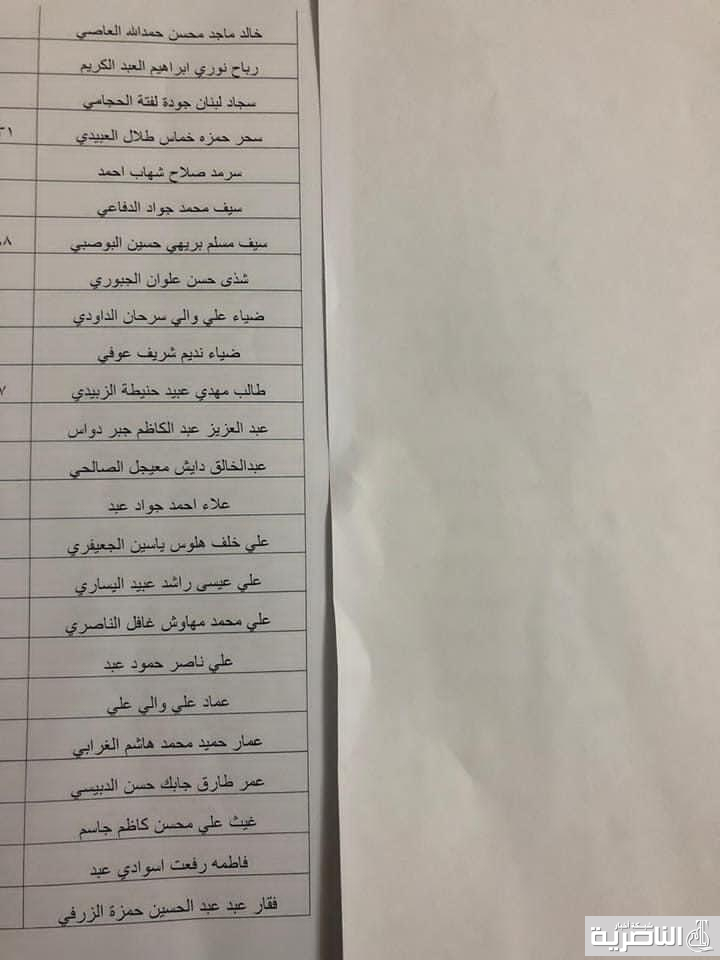 خالد ماجد محسن حمدالله العاصي
رباح نوري ابراهيم العبد الكريم
سجاد لبنان جودة لفتة الحجامي
سحر حمزه خماس طلال العبيدي
٣١
سرمد صلاح شهاب احمد
سيف محمد جواد الدفاعي
سيف مسلم بريهي حسين البوصبي
٨
شذى حسن علوان الجبوري
ضياء علي والي سرحان الداودي
ضياء نديم شريف عوفي
طالب مهدي عبيد حنيطة الزبيدي
٧
عبد العزيز عبد الكاظم جبر دواس
عبدالخالق دايش معيجل الصالحي
علاء احمد جواد عبد
علي خلف هلوس ياسين الجعيفري
علي عيسى راشد عبيد اليساري
علي محمد مهاوش غافل الناصري
علي ناصر حمود عبد
عماد علي والي علي
عمار حميد محمد هاشم الغرابي
عمر طارق جابك حسن الدبيسي
غيث علي محسن كاظم جاسم
فاطمه رفعت اسوادي عبد
فقار عبد عبد الحسين حمزة الزرفي
شبكة اخبار
الناصرية